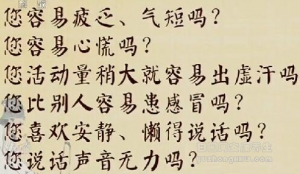 您容易疲乏、气短吗?
您容易心慌吗?
您活动量稍大就容易出虚汗吗
您比别人容易患感冒吗?
您喜欢安静、懒得说话吗?
您说话声音无力吗?